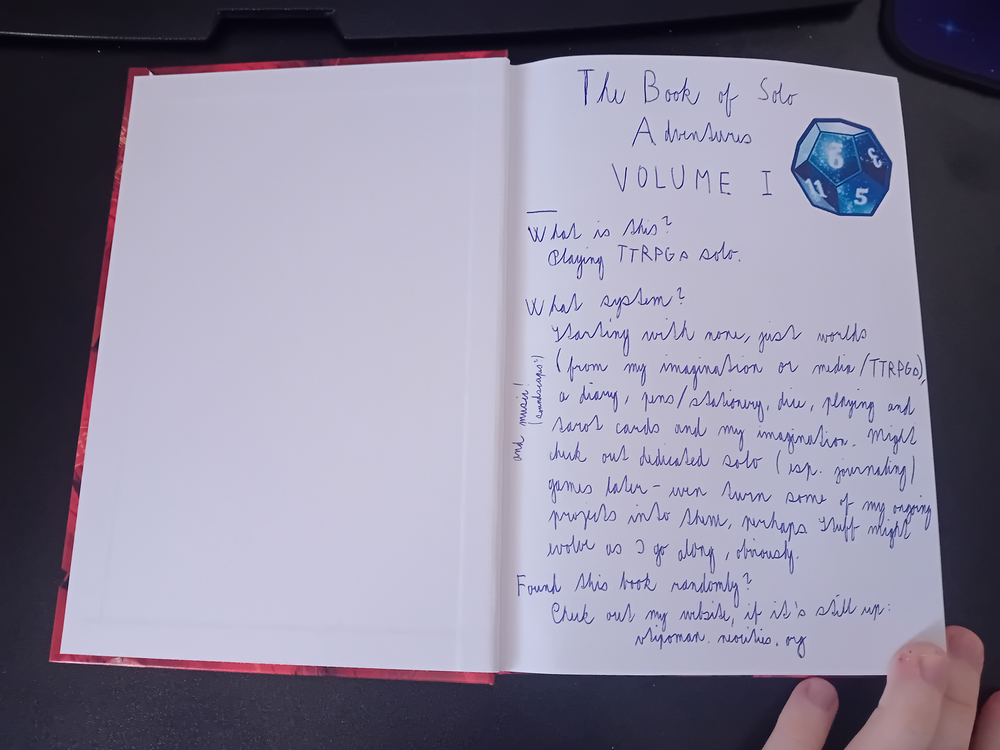 The Book of Solo
Adventures
VOLUME I
6
3
11
5
What is this?
Playing TTRPGs solo.
What system?
Starting with none, just worlds
(from my imagination or media/TTRPGs),
a diary, pens/stationery, dice, playing and
tarot cards and my imagination. Might
check out dedicated solo (esp. journaling)
games later - even turn some of my ongoing
projects into them, perhaps. Stuff might
evolve as I go along, obviously.
and music!
(soundscapes!)
Found this book randomly?
Check out my website, if it's still up:
vlipoman.neocities.org